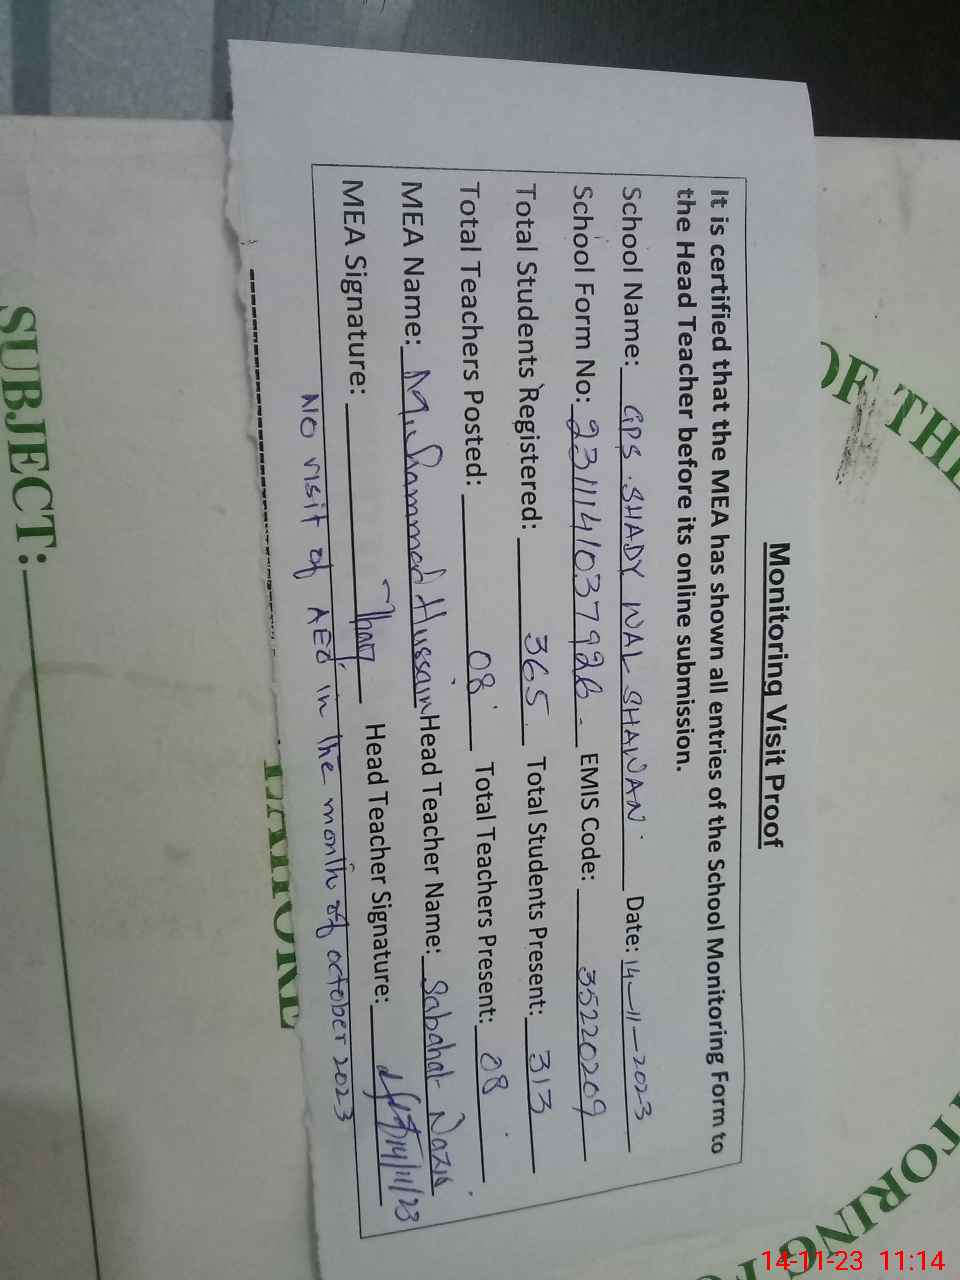 Monitoring Visit Proof
It is certified that the MEA has shown all entries of the School Monitoring Form to
the Head Teacher before its online submission.
School Name: GPS . SHADY WAL SHAWAN . Date: 14-11-2023
School Form No: 231114103792 . EMIS Code: 35220209
Total Students Registered: 365 . Total Students Present: 313
Total Teachers Posted: 08 Total Teachers Present: 08 .
MEA Name: Muhammad Hussain Head Teacher Name: Sabahat
MEA Signature: Head Teacher Signature: 14/11/23
No visit of AEO, in the month of october 2023
OF THE
TORING
LAHORE
SUBJECT:
14-11-23 11:14